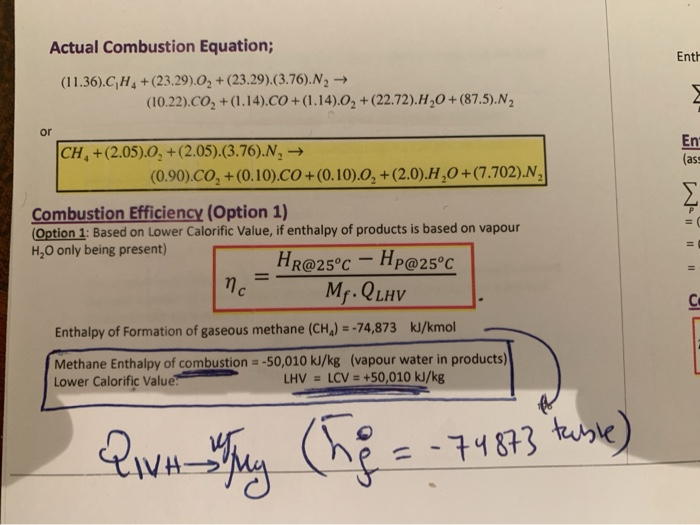 Actual Combustion Equation;
(11.36).C₁H₄ + (23.29).O₂ + (23.29).(3.76).N₂ →
(10.22).CO₂ + (1.14).CO + (1.14).O₂ + (22.72).H₂O + (87.5).N₂
or
CH₄ + (2.05).O₂ + (2.05).(3.76).N₂ →
(0.90).CO₂ + (0.10).CO + (0.10).O₂ + (2.0).H₂O + (7.702).N₂
Combustion Efficiency (Option 1)
(Option 1: Based on Lower Calorific Value, if enthalpy of products is based on vapour
H₂O only being present)
η_c = (H_R@25°C − H_P@25°C) / (M_f.Q_LHV) .
Enthalpy of Formation of gaseous methane (CH₄) = -74,873 kJ/kmol
Methane Enthalpy of combustion = -50,010 kJ/kg (vapour water in products)
Lower Calorific Value: LHV = LCV = +50,010 kJ/kg
(h̄°f = -74873 table)
Enth
Σ
En
(as
Σ
P
= (
= (
=
C